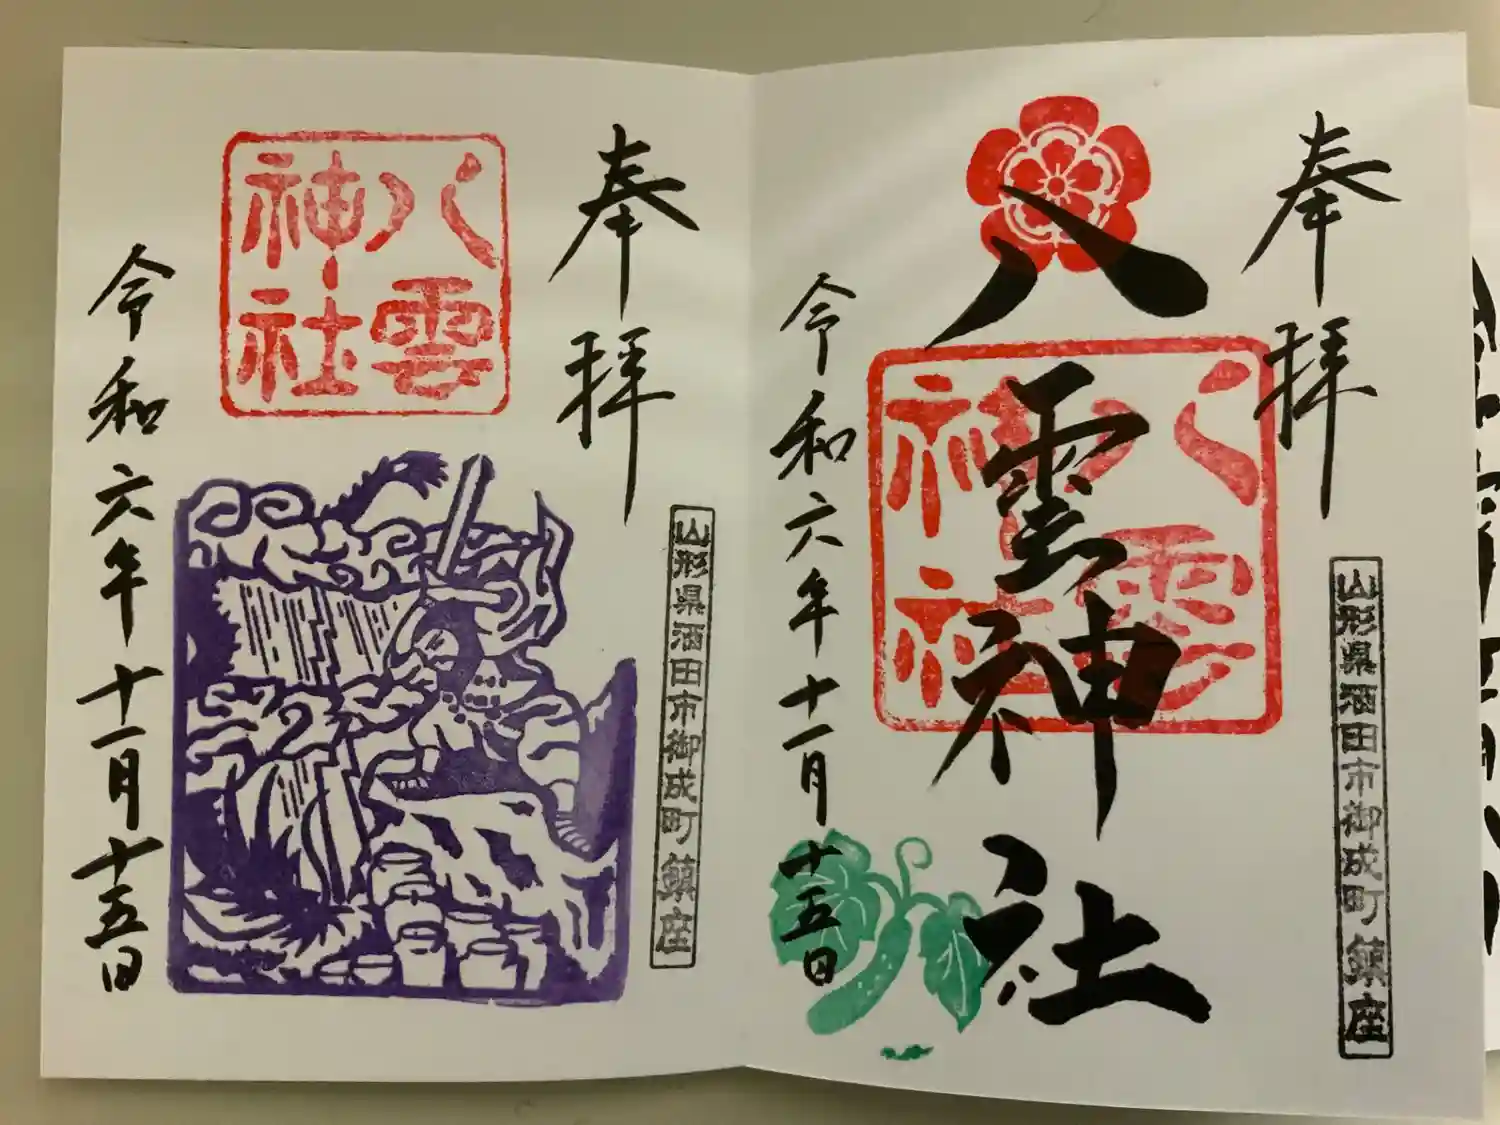 奉拝
八雲神社
八雲神社
山形県酒田市御成町鎮座
令和六年十一月十五日
奉拝
八雲神社
山形県酒田市御成町鎮座
令和六年十一月十五日